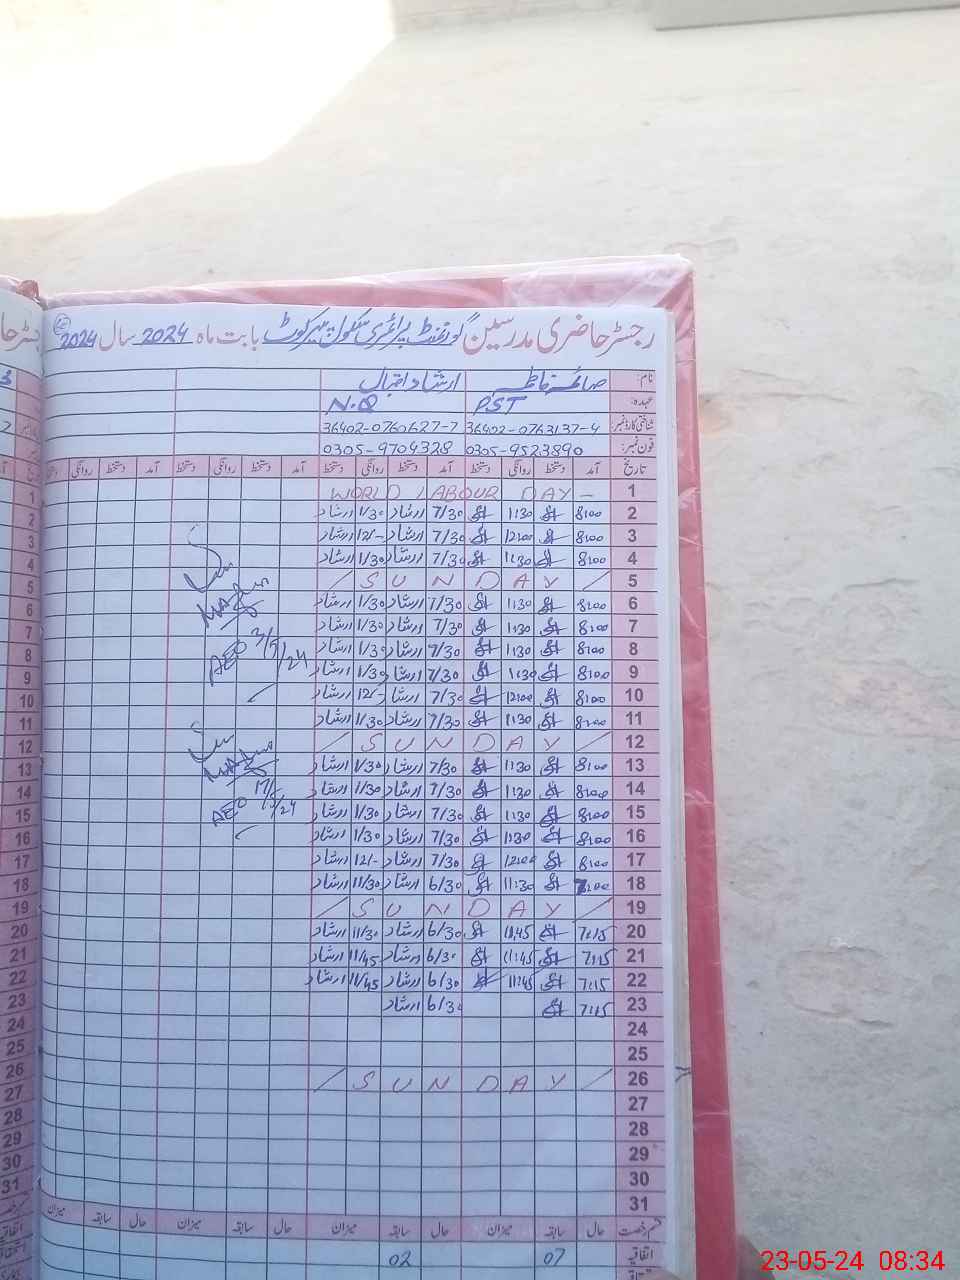 رجسٹر حاضری مدرسین گورنمنٹ پرائمری سکول بابت ماہ 2024 سال 2024
نام: صائمہ فاطمہ ارشاد اقبال
عہدہ: PST N.Q
شناختی کارڈ نمبر: 36402-0763137-4 36402-0760627-7
فون نمبر: 0305-9523890 0305-9704328
تاریخ آمد دستخط روانگی دستخط آمد دستخط روانگی دستخط آمد دستخط روانگی دستخط آمد دستخط روانگی
1 WORLD LABOUR DAY -
2 8:00 1:30 7/30 ارشاد 1/30 ارشاد
3 8:00 12:00 7/30 ارشاد 12/- ارشاد
4 8:00 1:30 7/30 ارشاد 1/30 ارشاد
5 / SUNDAY /
6 8:00 1:30 7/30 ارشاد 1/30 ارشاد
7 8:00 1:30 7/30 ارشاد 1/30 ارشاد
8 8:00 1:30 7/30 ارشاد 1/30 ارشاد
9 8:00 1:30 7/30 ارشاد 1/30 ارشاد
10 8:00 12:00 7/30 ارشاد 12/- ارشاد
11 8:00 1:30 7/30 ارشاد 1/30 ارشاد
12 / SUNDAY /
13 8:00 1:30 7/30 ارشاد 1/30 ارشاد
14 8:00 1:30 7/30 ارشاد 1/30 ارشاد
15 8:00 1:30 7/30 ارشاد 1/30 ارشاد
16 8:00 1:30 7/30 ارشاد 1/30 ارشاد
17 8:00 12:00 7/30 ارشاد 12/- ارشاد
18 7:00 11:30 6/30 ارشاد 11/30 ارشاد
19 / SUNDAY /
20 7:15 11:45 6/30 ارشاد 11/30 ارشاد
21 7:15 11:45 6/30 ارشاد 11/45 ارشاد
22 7:15 11:45 6/30 ارشاد 11/45 ارشاد
23 7:15 6/30 ارشاد
24
25
26 / SUNDAY /
27
28
29
30
31
AEO 3/5/24
AEO 17/5/24
قسم رخصت حال سابقہ میزان حال سابقہ میزان حال سابقہ میزان حال سابقہ میزان
اتفاقیہ 07 02
23-05-24 08:34